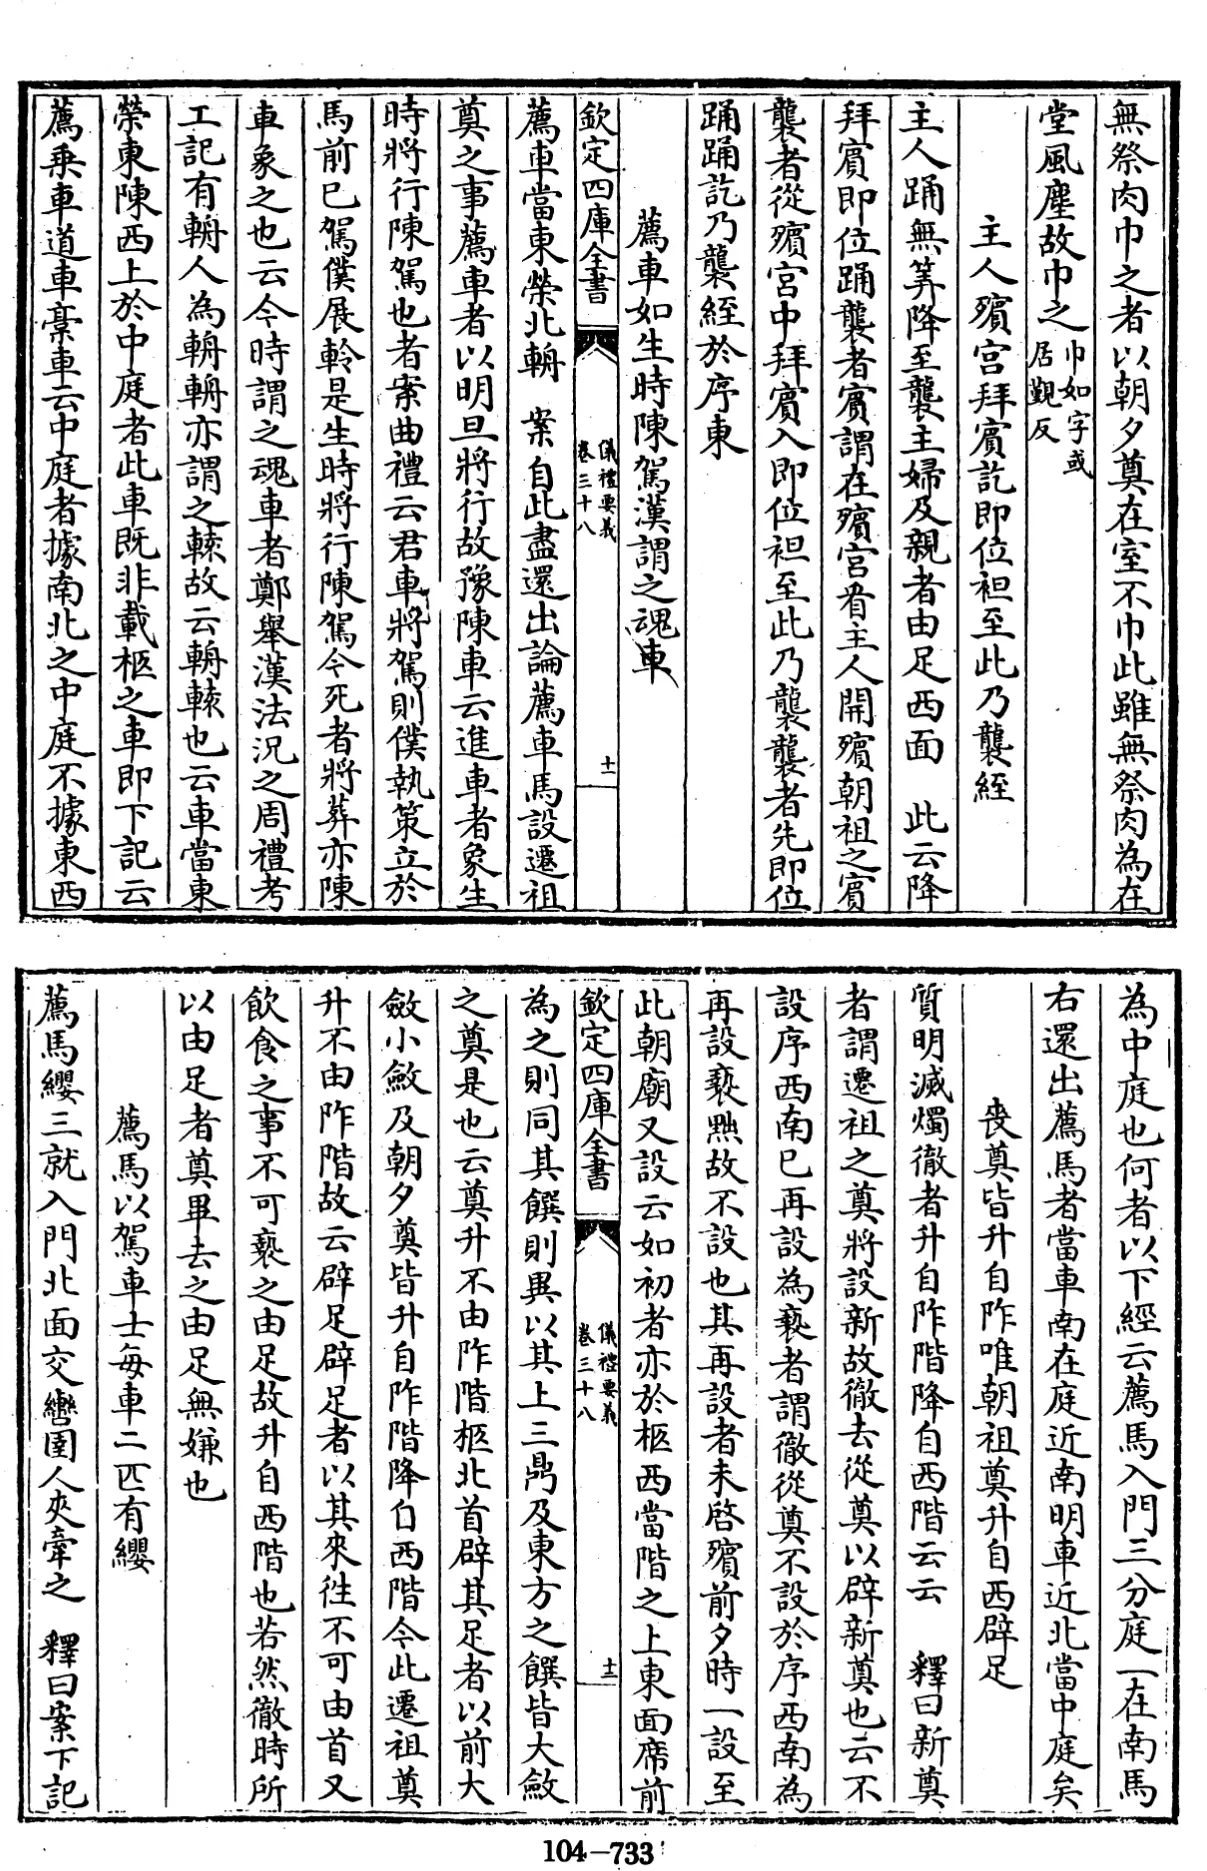 無祭肉巾之者以朝夕奠在室不巾此雖無祭肉為在
堂風塵故巾之巾如字或居覲反
主人殯宫拜賓訖即位袒至此乃襲絰
主人踊無筭降至襲主婦及親者由足西面　此云降
拜賓即位踊襲者賓謂在殯宫者主人開殯朝祖之賓
襲者從殯宮中拜賓入即位袒至此乃襲襲者先即位
踊踊訖乃襲絰於序東
薦車如生時陳駕漢謂之魂車
欽定四庫全書
儀禮要義
卷三十八
十一
薦車當東榮北輈　案自此盡還出論薦車馬設遷祖
奠之事薦車者以明旦將行故豫陳車云進車者象生
時將行陳駕也者案曲禮云君車將駕則僕執策立於
馬前已駕僕展軨是生時將行陳駕今死者將葬亦陳
車象之也云今時謂之魂車者鄭舉漢法況之周禮考
工記有輈人為輈輈亦謂之轅故云輈轅也云車當東
榮東陳西上於中庭者此車既非載柩之車即下記云
薦乘車道車槀車云中庭者據南北之中庭不據東西
為中庭也何者以下經云薦馬入門三分庭一在南馬
右還出薦馬者當車南在庭近南明車近北當中庭矣
喪奠皆升自阼唯朝祖奠升自西辟足
質明滅燭徹者升自阼階降自西階云云　釋曰新奠
者謂遷祖之奠將設新故徹去從奠以辟新奠也云不
設序西南巳再設為褻者謂徹從奠不設於序西南為
再設褻黷故不設也其再設者未啓殯前夕時一設至
此朝廟又設云如初者亦於柩西當階之上東面席前
欽定四庫全書
儀禮要義
卷三十八
十二
為之則同其饌則異以其上三鼎及東方之饌皆大斂
之奠是也云奠升不由阼階柩北首辟其足者以前大
斂小斂及朝夕奠皆升自阼階降自西階今此遷祖奠
升不由阼階故云辟足辟足者以其來往不可由首又
飲食之事不可褻之由足故升自西階也若然徹時所
以由足者奠畢去之由足無嫌也
薦馬以駕車士每車二匹有纓
薦馬纓三就入門北面交轡圉人夾牽之　釋曰案下記
104-733